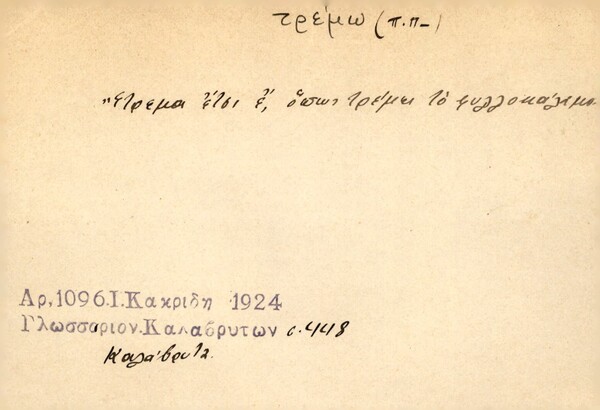 τρέμω (π.π-)
"ἔτρεμα ἔτσι ἔ, ὅπως τρέμει τὸ φυλλοκάλαμο
Αρ,1096.Ι.Κακριδη 1924
Γλωσσαριον.Καλαβρυτων σ.448
Καλάβρυτα.